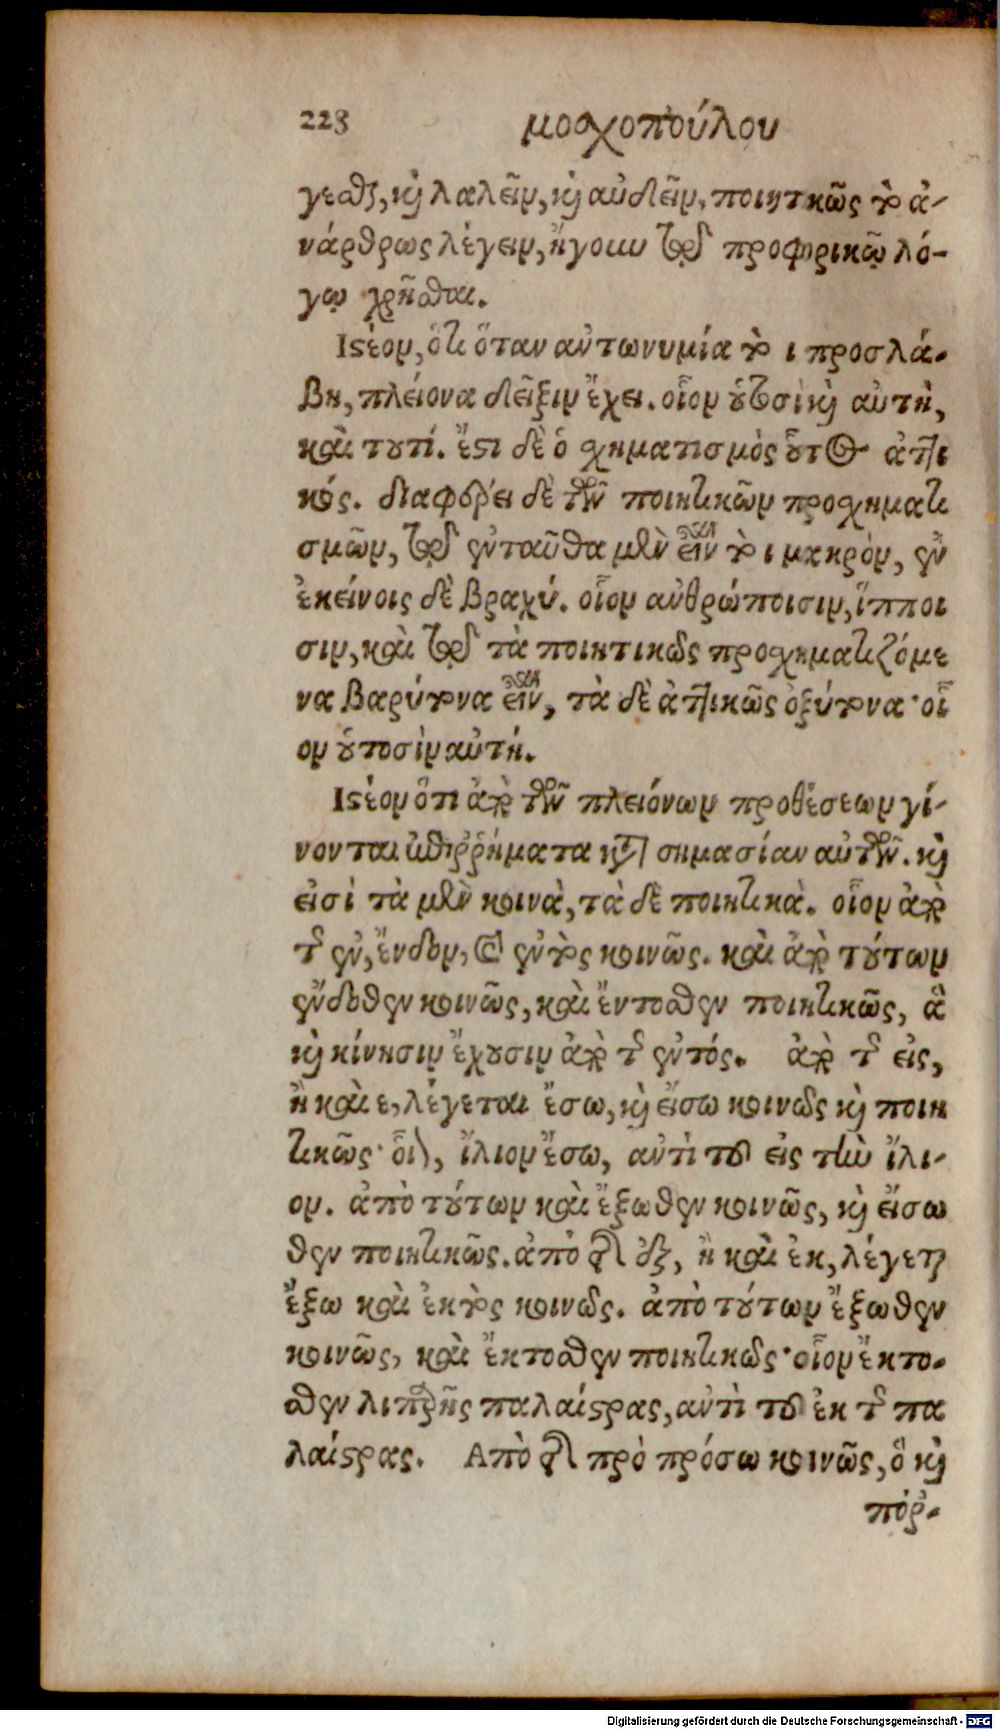 223 μοσχοπούλου
γεσθαι, καὶ λαλεῖν, καὶ αὐδεῖν, ποιητικῶς τὸ ἀ-
νάρθρως λέγειν, ἤγουν τῷ προφορικῷ λό-
γῳ χρῆσθαι.
Ιστέον, ὅτι ὅταν αὐτωνυμία τὸ ι προσλά-
βη, πλείονα δεῖξιν ἔχει. οἷον οὑτοσὶ καὶ αὑτηὶ,
καὶ τουτί. ἔστι δὲ ὁ σχηματισμὸς οὗτος ἀττι
κός. διαφέρει δὲ τῶν ποιητικῶν προσχηματι
σμῶν, τῷ ἐνταῦθα μὲν εἶναι τὸ ι μακρὸν, ἐν
ἐκείνοις δὲ βραχύ. οἷον ἀνθρώποισιν, ἵπποι
σιν, καὶ τῷ τὰ ποιητικῶς προσχηματιζόμε
να βαρύτονα εἶναι, τὰ δὲ ἀττικῶς ὀξύτονα· οἷ
ον οὑτοσὶν αὑτηί.
Ιστέον ὅτι ἀπὸ τῶν πλειόνων προθέσεων γί-
νονται ἐπιρρήματα κατὰ σημασίαν αὐτῶν. καὶ
εἰσὶ τὰ μὲν κοινὰ, τὰ δὲ ποιητικὰ. οἷον ἀπὸ
τῆς ἐν, ἔνδον, καὶ ἐντὸς κοινῶς. καὶ ἀπὸ τούτων
ἔνδοθεν κοινῶς, καὶ ἔντοσθεν ποιητικῶς, ἃ
καὶ κίνησιν ἔχουσιν ἀπὸ τῆς ἐντός. ἀπὸ τῆς εἰς,
ἢ καὶ ε, λέγεται ἔσω, καὶ εἴσω κοινῶς καὶ ποιη
τικῶς· οἷον, ἴλιον ἔσω, αὐτὶ τοῦ εἰς τὴν ἴλι-
ον. ἀπὸ τούτων καὶ ἔξωθεν κοινῶς, καὶ εἴσω
θεν ποιητικῶς. ἀπὸ τῆς ἐξ, ἢ καὶ ἐκ, λέγεται
ἔξω καὶ ἐκτὸς κοινῶς. ἀπὸ τούτων ἔξωθεν
κοινῶς, καὶ ἔκτοσθεν ποιητικῶς· οἷον ἔκτο-
σθεν λιπαρῆς παλαίστρας, αὐτὶ τοῦ ἐκ τῆς πα
λαίστρας. Απὸ τῆς πρὸ πρόσω κοινῶς, ὃ καὶ
πόρ-
Digitalisierung gefördert durch die Deutsche Forschungsgemeinschaft - DFG